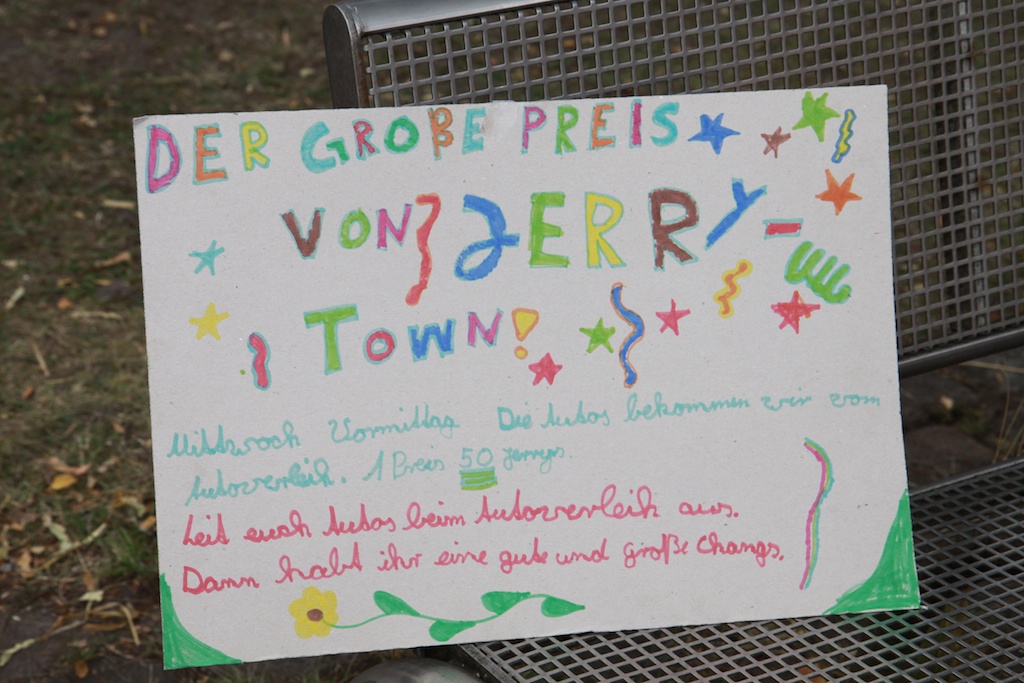 DER GROßE PREIS
VON JERRY-
TOWN!
Mittwoch Vormittag Die Autos bekommen wir vom
Autoverleih. 1 Preis 50 Jerrys.
Leit euch Autos beim Autoverleih aus.
Dann habt ihr eine gute und große Changs.